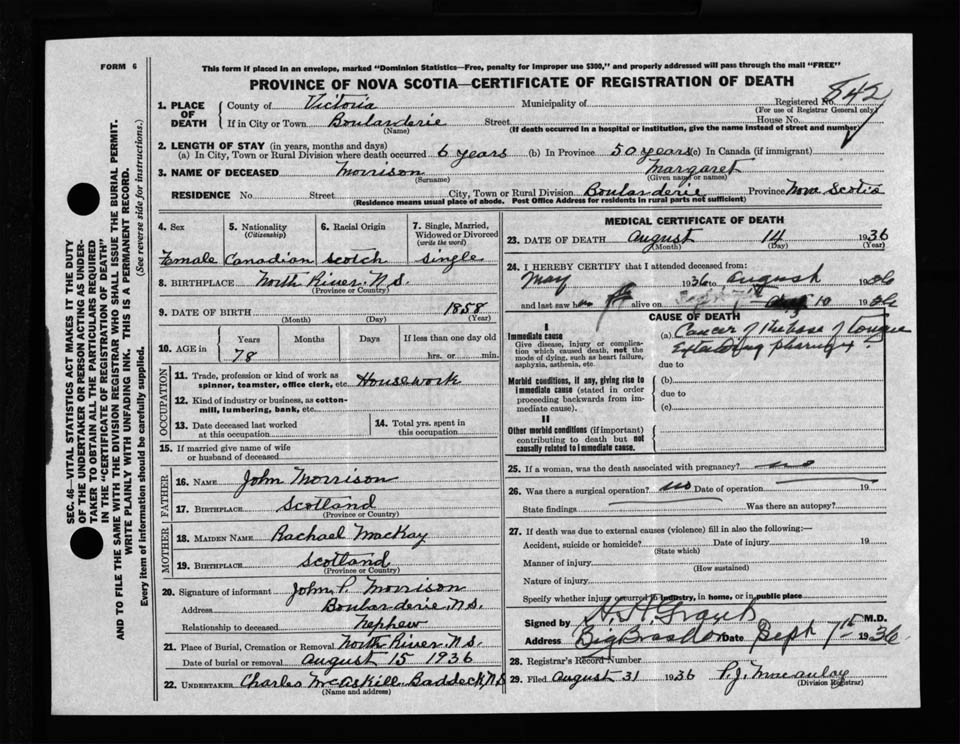 FORM 6
This form if placed in an envelope, marked "Dominion Statistics—Free, penalty for improper use $300," and properly addressed will pass through the mail "FREE"
PROVINCE OF NOVA SCOTIA—CERTIFICATE OF REGISTRATION OF DEATH
842
1. PLACE OF DEATH
County of Victoria Municipality of Registered No.
(For use of Registrar General only)
If in City or Town Boularderie Street House No.
(Name) (If death occurred in a hospital or institution, give the name instead of street and number)
2. LENGTH OF STAY (in years, months and days)
(a) In City, Town or Rural Division where death occurred 6 years (b) In Province 50 years (c) In Canada (if immigrant)
3. NAME OF DECEASED Morrison Margaret
(Surname) (Given name or names)
RESIDENCE No. Street City, Town or Rural Division Boularderie Province Nova Scotia
(Residence means usual place of abode. Post Office Address for residents in rural parts not sufficient)
4. Sex
Female
5. Nationality
(Citizenship)
Canadian
6. Racial Origin
Scotch
7. Single, Married, Widowed or Divorced
(write the word)
Single
8. BIRTHPLACE North River, N.S.
(Province or Country)
9. DATE OF BIRTH 1858
(Month) (Day) (Year)
10. AGE in
Years Months Days If less than one day old
78 hrs. or min.
OCCUPATION
11. Trade, profession or kind of work as spinner, teamster, office clerk, etc. Housework
12. Kind of industry or business, as cotton-mill, lumbering, bank, etc.
13. Date deceased last worked at this occupation
14. Total yrs. spent in this occupation
15. If married give name of wife or husband of deceased
FATHER
16. NAME John Morrison
17. BIRTHPLACE Scotland
(Province or Country)
MOTHER
18. MAIDEN NAME Rachael MacKay
19. BIRTHPLACE Scotland
(Province or Country)
20. Signature of informant John P. Morrison
Address Boularderie, N.S.
Relationship to deceased Nephew
21. Place of Burial, Cremation or Removal North River, N.S.
Date of burial or removal August 15 1936
22. UNDERTAKER Charles McAskill Baddeck, N.S.
(Name and address)
MEDICAL CERTIFICATE OF DEATH
23. DATE OF DEATH August 14 1936
(Month) (Day) (Year)
24. I HEREBY CERTIFY that I attended deceased from:
May 1936 to August 1936
and last saw her alive on Aug 10 1936
CAUSE OF DEATH
I
Immediate cause
Give disease, injury or complication which caused death, not the mode of dying, such as heart failure, asphyxia, asthenia, etc.
(a) Cancer of the base of tongue
Extending pharynx
due to
Morbid conditions, if any, giving rise to immediate cause (stated in order proceeding backwards from immediate cause).
(b)
due to
(c)
II
Other morbid conditions (if important) contributing to death but not causally related to immediate cause.
25. If a woman, was the death associated with pregnancy? no
26. Was there a surgical operation? no Date of operation 19
State findings Was there an autopsy?
27. If death was due to external causes (violence) fill in also the following:—
Accident, suicide or homicide? Date of injury 19
(State which)
Manner of injury
(How sustained)
Nature of injury
Specify whether injury occurred in industry, in home, or in public place
Signed by M.D.
Address Big Bras d'Or Date Sept 7th 1936
28. Registrar's Record Number
29. Filed August 31 1936 P.J. Macaulay
(Division Registrar)
SEC. 46—VITAL STATISTICS ACT MAKES IT THE DUTY
OF THE UNDERTAKER OR PERSON ACTING AS UNDER-
TAKER TO OBTAIN ALL THE PARTICULARS REQUIRED
IN THE "CERTIFICATE OF REGISTRATION OF DEATH"
AND TO FILE THE SAME WITH THE DIVISION REGISTRAR WHO SHALL ISSUE THE BURIAL PERMIT.
WRITE PLAINLY WITH UNFADING INK. THIS IS A PERMANENT RECORD.
Every item of information should be carefully supplied. (See reverse side for instructions.)